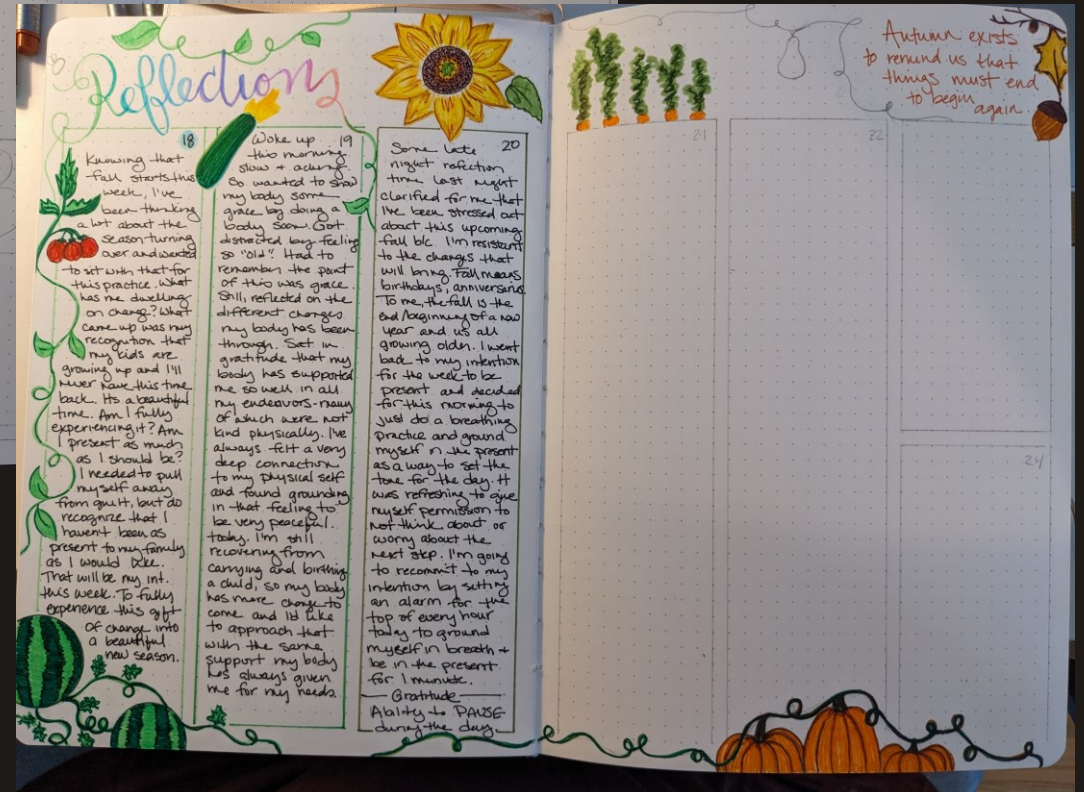 Reflections
18
Knowing that
fall starts this
week, I've
been thinking
a lot about the
season turning
over and wanted
to sit with that for
this practice. What
has me dwelling
on change? What
came up was my
recognition that
my kids are
growing up and I'll
never have this time
back. Its a beautiful
time. Am I fully
experiencing it? Am
I present as much
as I should be?
I needed to pull
myself away
from guilt, but do
recognize that I
haven't been as
present to my family
as I would like.
That will be my int.
this week. To fully
experience this gift
of change into
a beautiful
new season.
19
Woke up
this morning
slow + aching.
So wanted to show
my body some
grace by doing a
body scan. Got
distracted by feeling
so "old". Had to
remember the point
of this was grace.
Still, reflected on the
different changes
my body has been
through. Sat in
gratitude that my
body has supported
me so well in all
my endeavors-many
of which were not
kind physically. I've
always felt a very
deep connection
to my physical self
and found grounding
in that feeling to
be very peaceful.
today. I'm still
recovering from
carrying and birthing
a child, so my body
has more change to
come and I'd like
to approach that
with the same
support my body
has always given
me for my needs.
20
Some late
night refection
time last night
clarified for me that
I've been stressed out
about this upcoming
fall b/c I'm resistant
to the changes that
will bring. Fall means
birthdays, anniversaries
To me, the fall is the
end/beginning of a new
year and us all
growing older. I went
back to my intention
for the week to be
present and decided
for this morning to
just do a breathing
practice and ground
myself in the present
as a way to set the
tone for the day. It
was refreshing to give
myself permission to
not think about or
worry about the
next step. I'm going
to recommit to my
intention by setting
an alarm for the
top of every hour
today to ground
myself in breath +
be in the present
for 1 minute.
Gratitude
Ability to PAUSE
during the day.
21
22
Autumn exists
to remind us that
things must end
to begin
again.
24